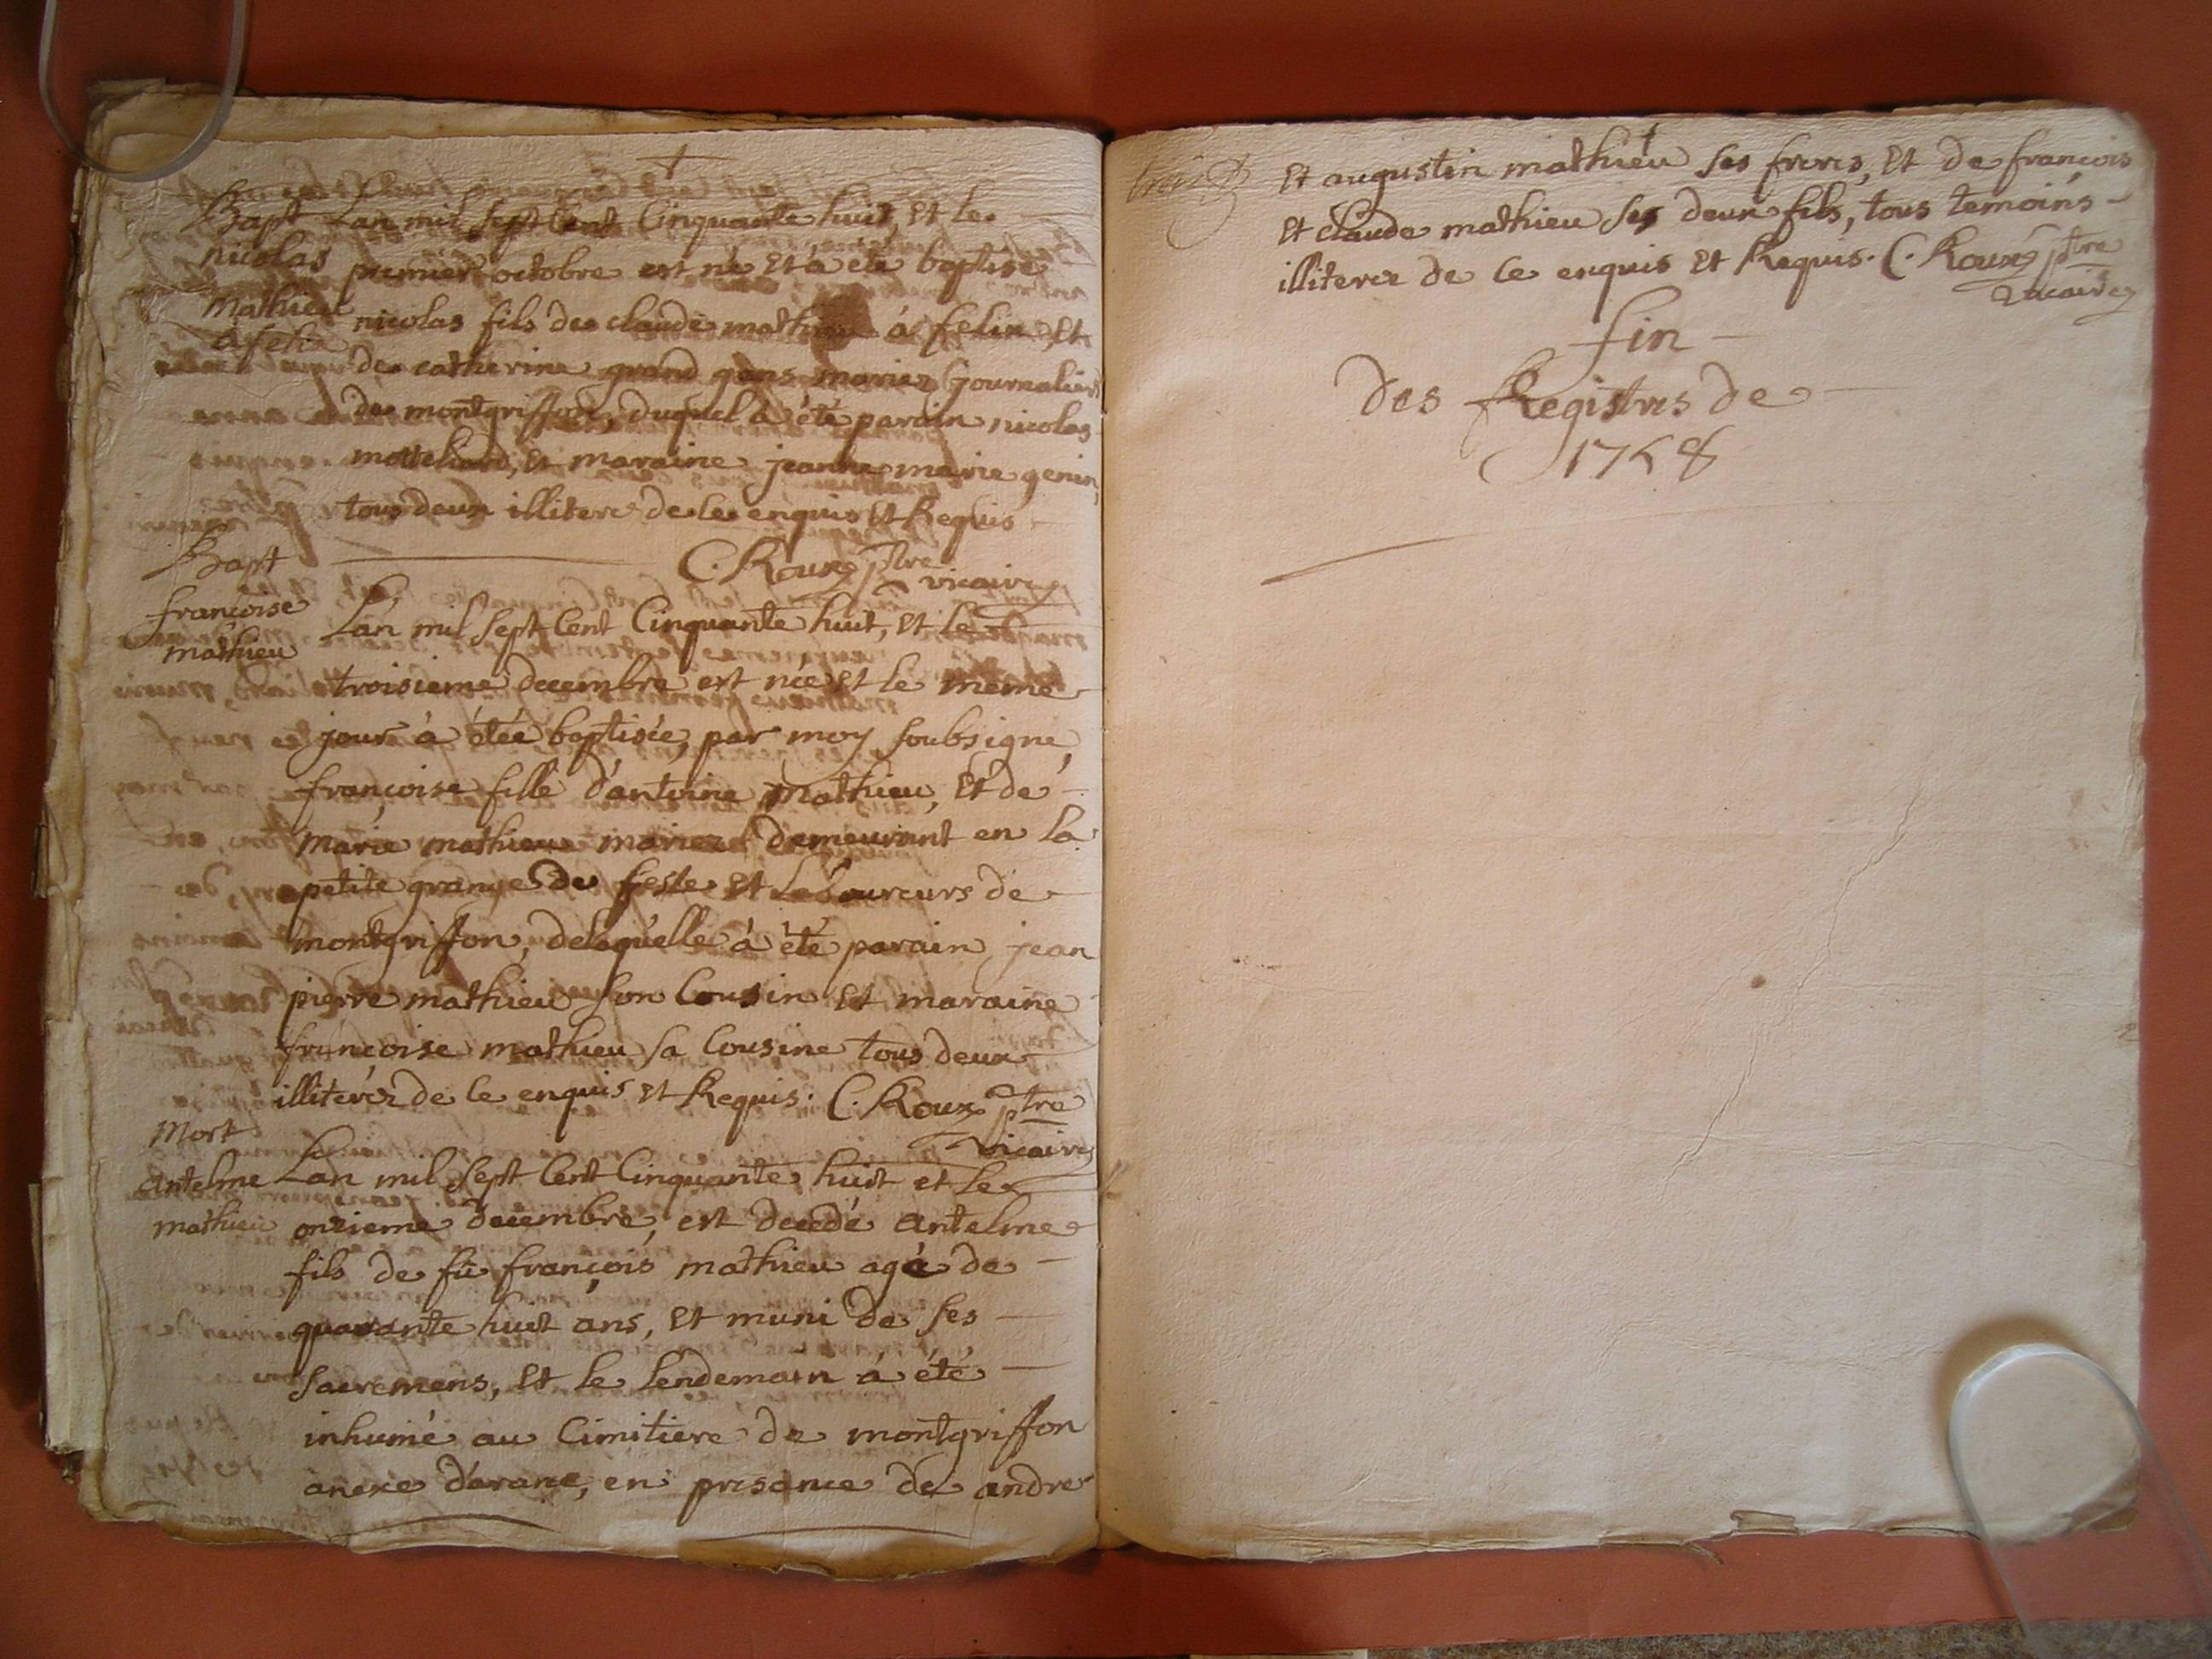 Bapt Lan mil sept Cent Cinquante huit, et le
nicolas premier octobre est né et à été baptisé
mathieu nicolas fils de claude mathieu à felix, et
à felix de catherine grand gens mariez journaliers
de montgriffon, duquel à été parain nicolas
et maraine jeanne marie genin,
tous deux illiterez de ce enquis et Requis
C. Roux ptre
vicaire
Bapt
françoise
mathieu
Lan mil sept Cent Cinquante huit, et le
troisieme decembre est née et le même
jour à étée baptisée, par moy soubsigné,
françoise fille d'antoine mathieu, et de
marie mathieu mariez demeurant en la
petite grange de et Laboureurs de
montgriffon, delaquelle à été parain jean
pierre mathieu son Cousin et maraine
françoise mathieu sa Cousine tous deux
illiterez de ce enquis et Requis. C. Roux ptre
vicaire
Mort
antelme Lan mil sept Cent Cinquante huit et le
mathieu onzieme decembre, est decedé antelme
fils de fû françois mathieu agé de
quarante huit ans, et muni de ses
sacremens, et le lendemain à été
inhumé au Cimitiere de montgriffon
anexe d'arane, en presance de andre
et augustin mathieu ses freres, et de françois
et claude mathieu ses deux fils, tous temoins
illiterez de ce enquis et Requis. C. Roux ptre
vicaire
fin
des Registres de
1758